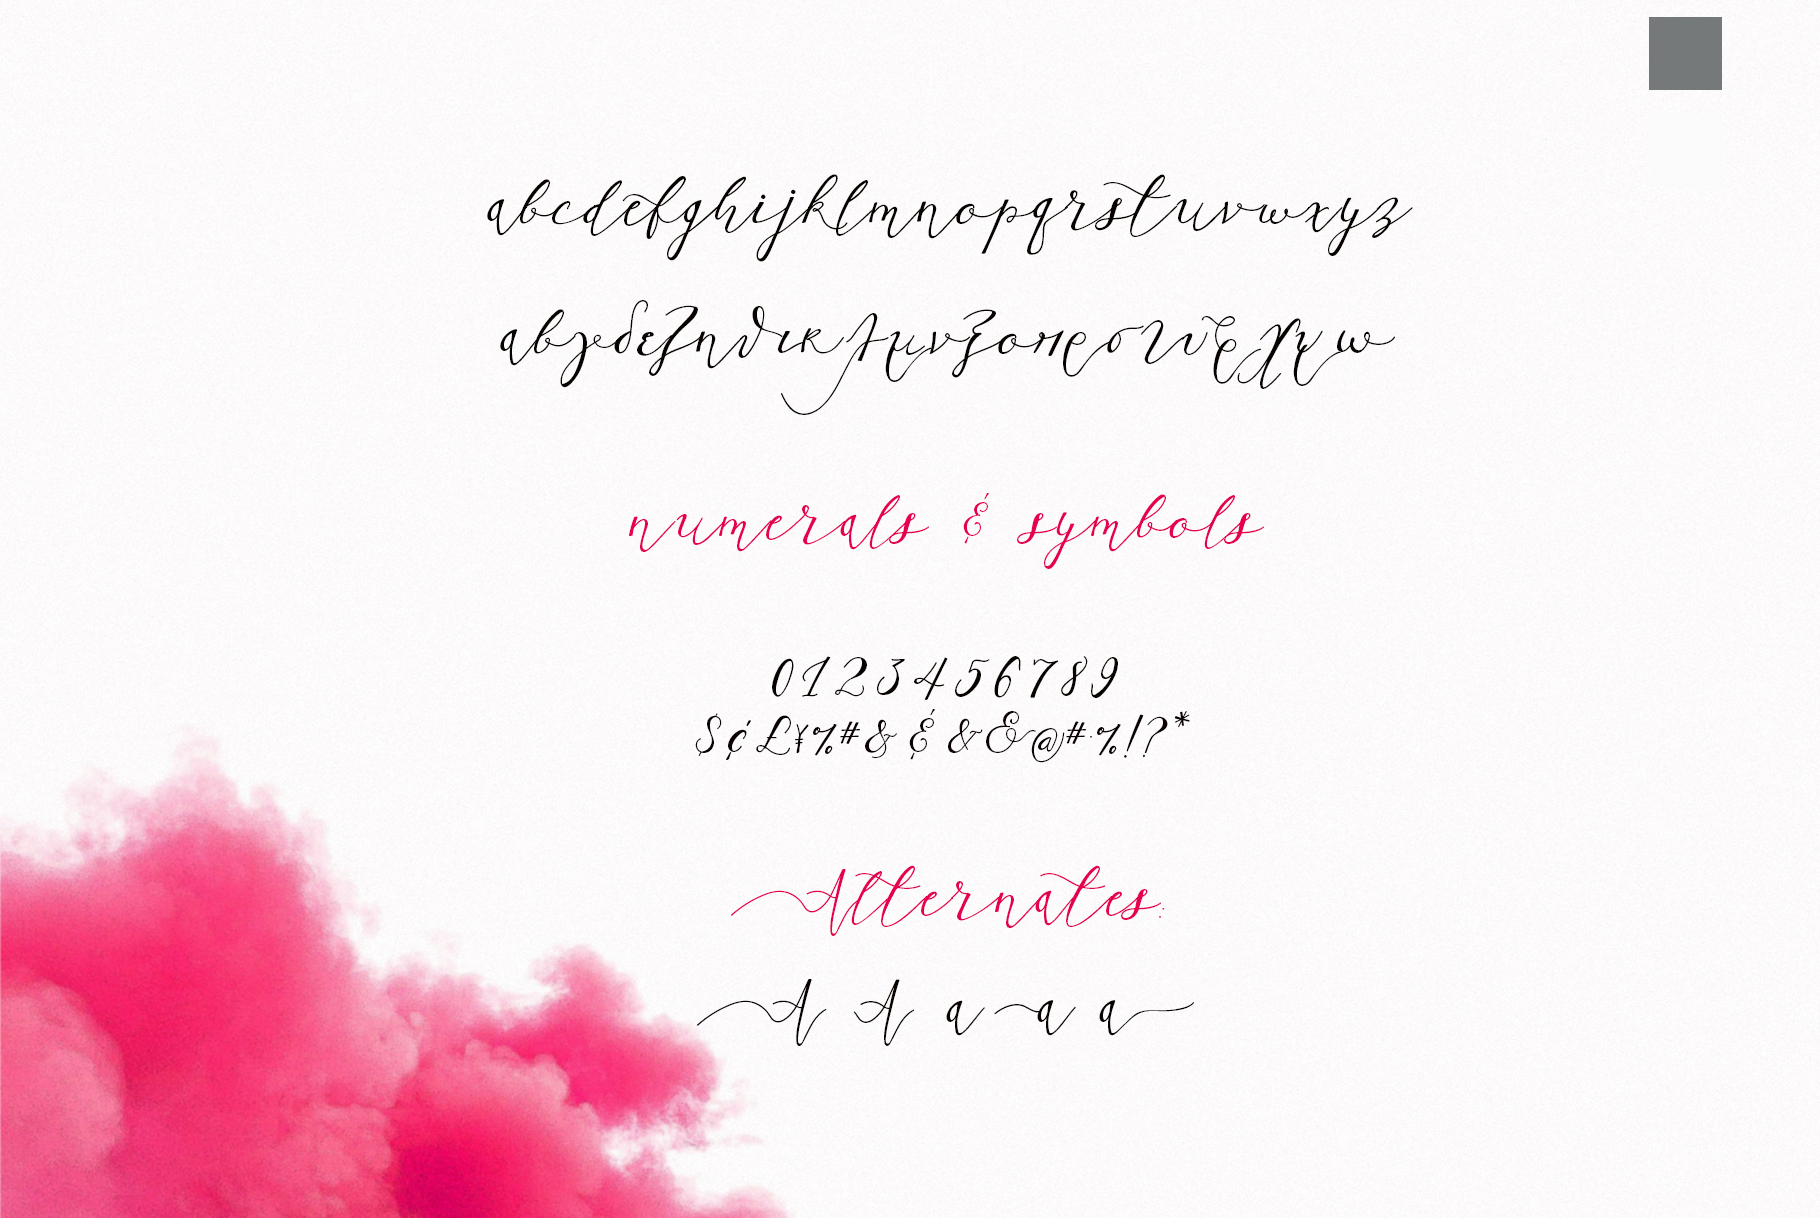 abcdefghijklmnopqrstuvwxyz
αβγδεζηθικλμνξοπρστυφχψω
numerals & symbols
0123456789
$¢£¥%#&&&&@#·%!?*
Alternates:
A A a a a